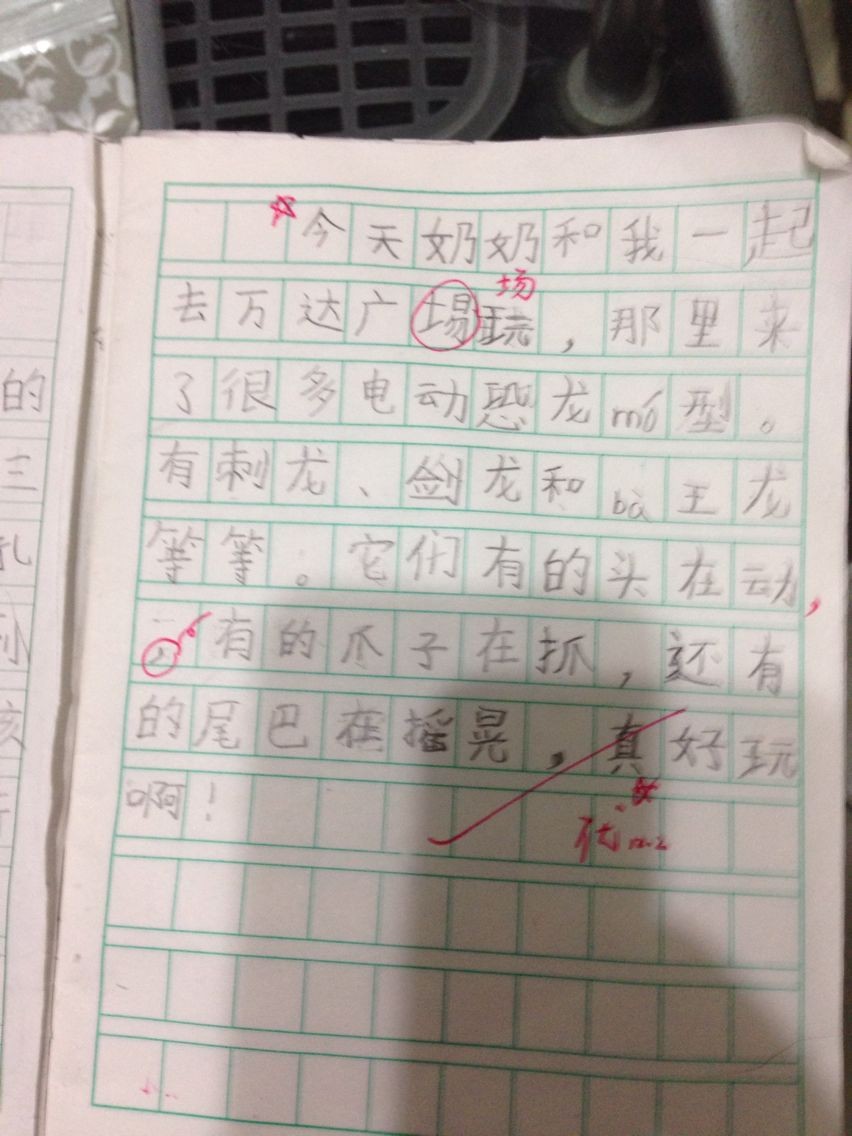 今天奶奶和我一起
场
去万达广埸玩，那里来
了很多电动恐龙mó型。
有刺龙、剑龙和bà王龙
等等。它们有的头在动，
有的爪子在抓，还有
的尾巴在摇晃，真好玩
啊！
优 12.2
的
三